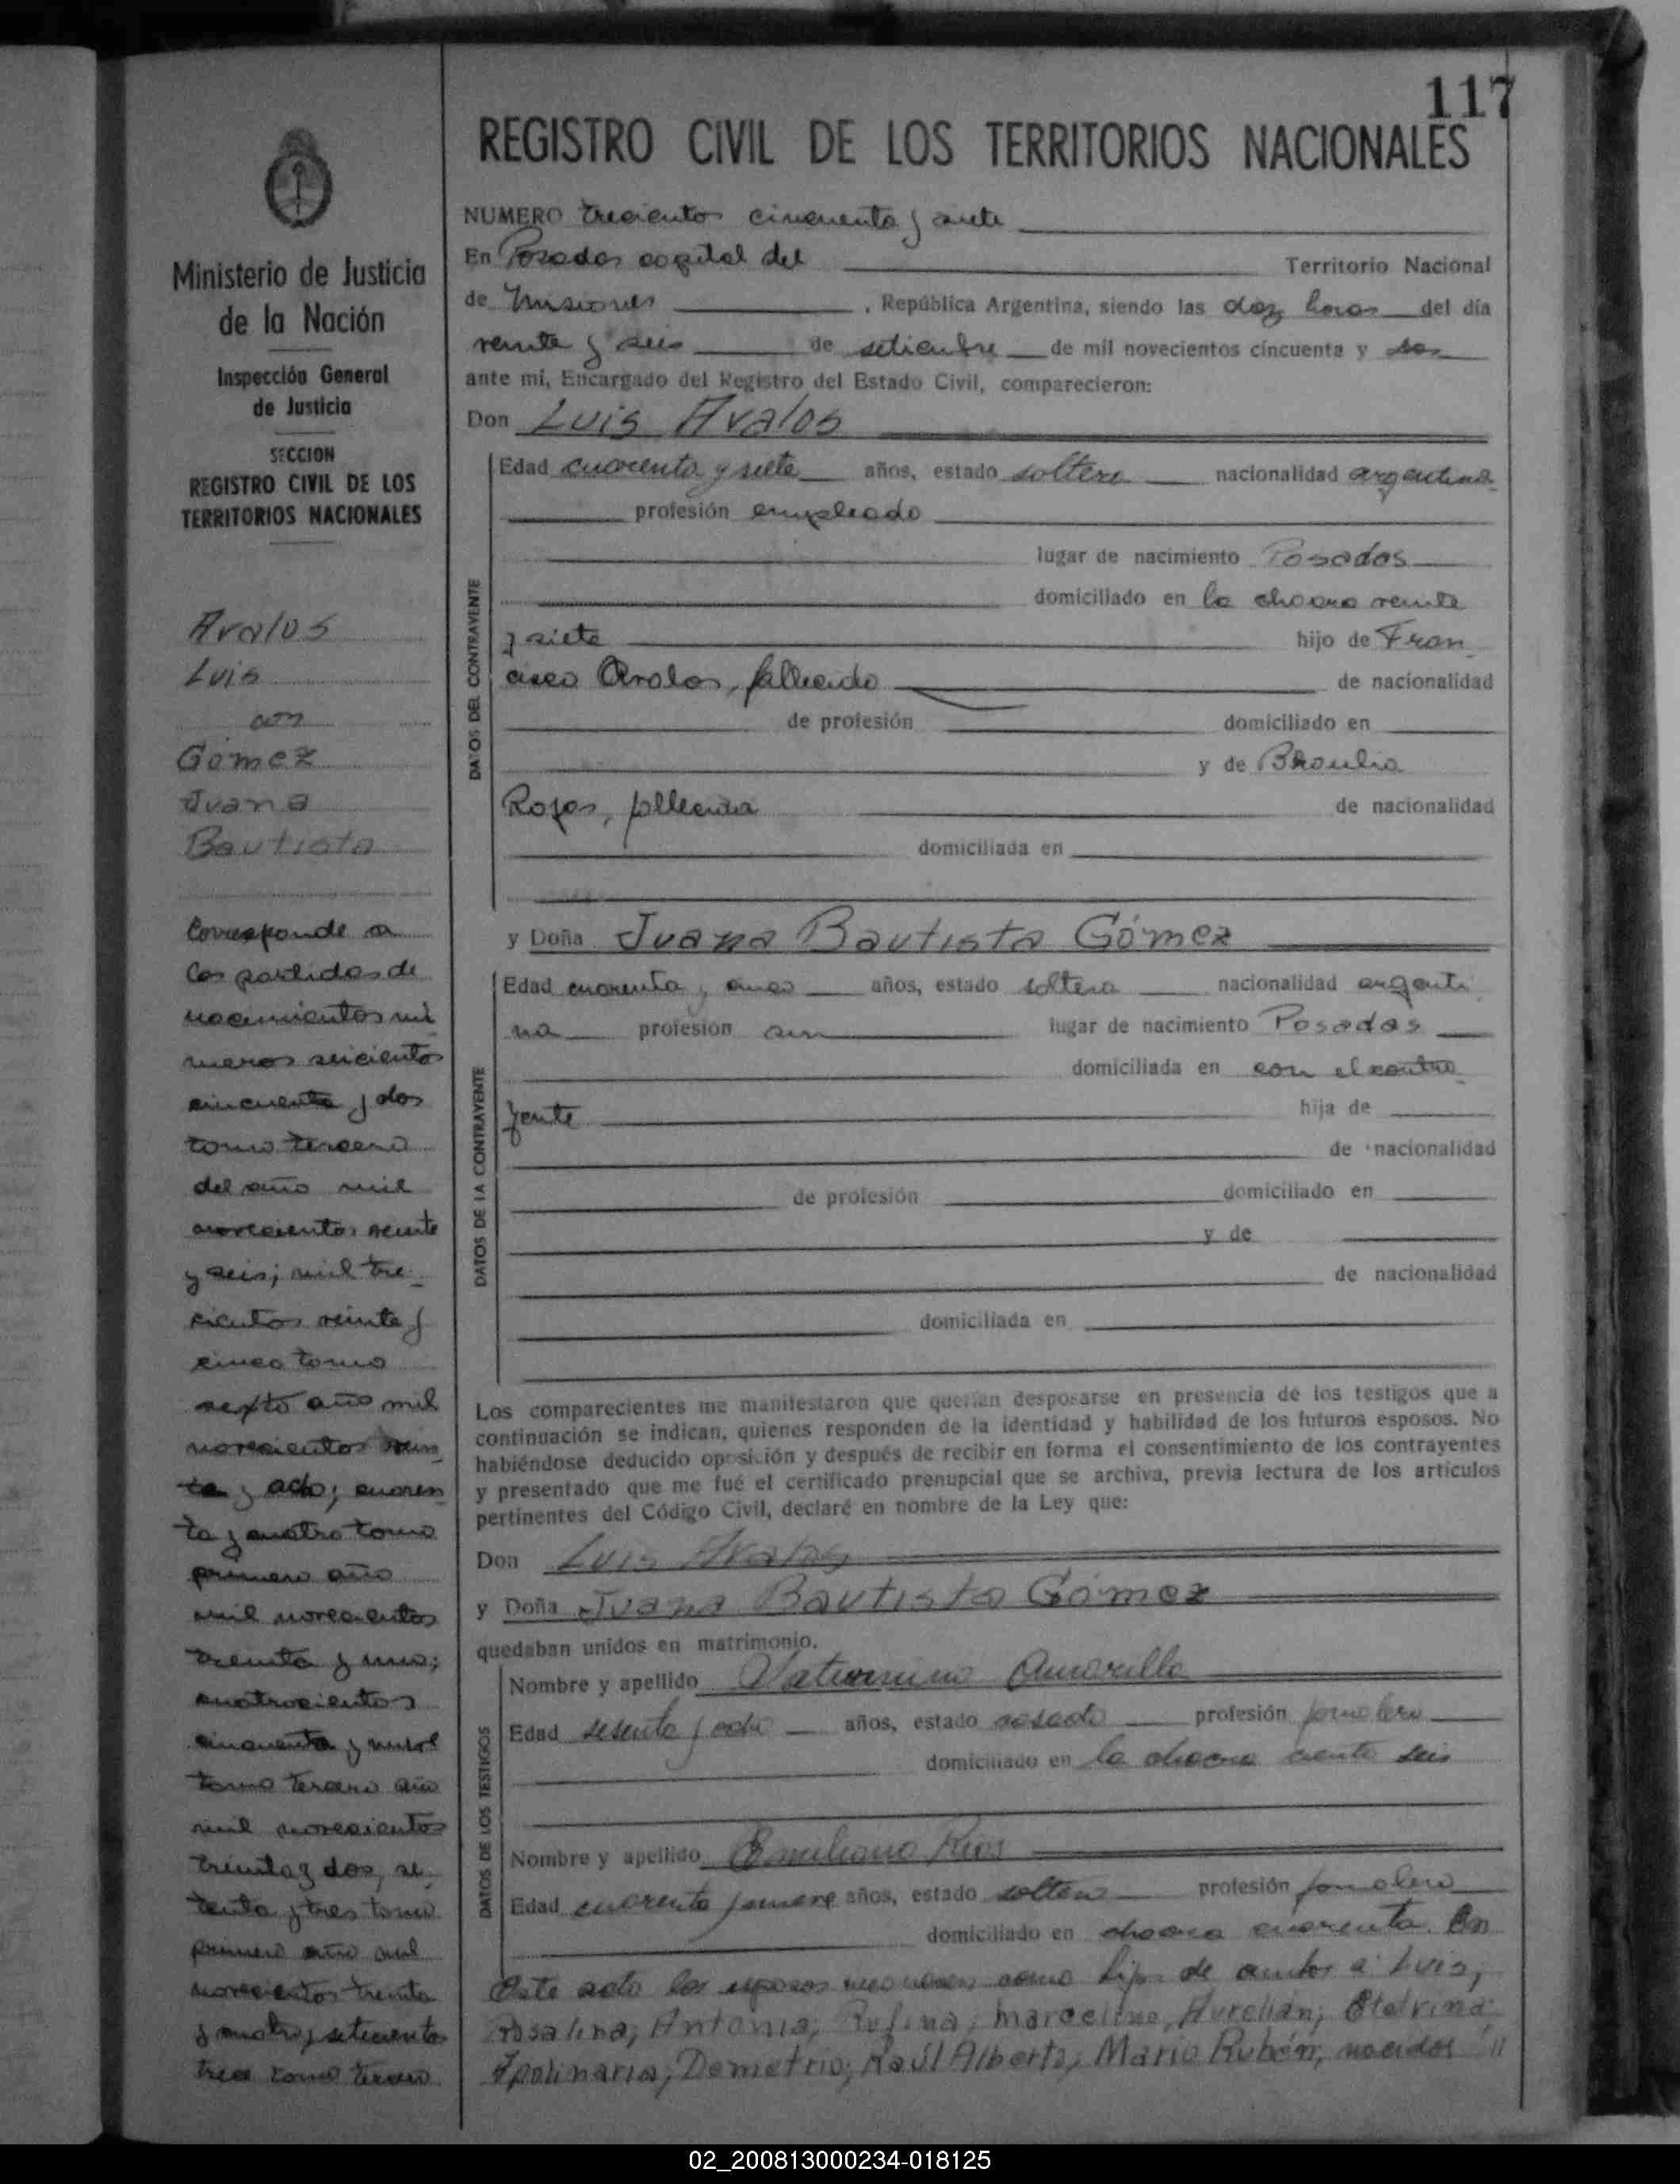 117
REGISTRO CIVIL DE LOS TERRITORIOS NACIONALES
Ministerio de Justicia
de la Nación
Inspección General
de Justicia
SECCION
REGISTRO CIVIL DE LOS
TERRITORIOS NACIONALES
Avalos
Luis
con
Gómez
Juana
Bautista
Corresponde a
las partidas de
nacimientos nú
meros seicientos
cincuenta y dos
tomo tercero
del año mil
novecientos veinte
y seis; mil tre
cientos veinte y
cinco tomo
sexto año mil
novecientos vein
te y ocho; cuaren
ta y cuatro tomo
primero año
mil novecientos
treinta y uno;
cuatrocientos
cincuenta y nueve
tomo tercero año
mil novecientos
treinta y dos, se
tenta y tres tomo
primero año mil
novecientos treinta
y cuatro, setecientos
trece tomo tercero
NUMERO trecientos cincuenta y siete
En Posadas capital del Territorio Nacional
de Misiones , República Argentina, siendo las diez horas del día
veinte y seis de setiembre de mil novecientos cincuenta y
ante mí, Encargado del Registro del Estado Civil, comparecieron:
Don Luis Avalos
DATOS DEL CONTRAYENTE
Edad cuarenta y siete años, estado soltero nacionalidad argentina
profesión empleado
lugar de nacimiento Posadas
domiciliado en la chacra veinte
y siete hijo de Fran
cisco Avalos, fallecido de nacionalidad
de profesión domiciliado en
y de Braulia
Rojas, fallecida de nacionalidad
domiciliada en
y Doña Juana Bautista Gómez
DATOS DE LA CONTRAYENTE
Edad cuarenta y cinco años, estado soltera nacionalidad argenti
na profesión sin lugar de nacimiento Posadas
domiciliada en con el contra
yente hija de
de nacionalidad
de profesión domiciliado en
y de
de nacionalidad
domiciliada en
Los comparecientes me manifestaron que querían desposarse en presencia de los testigos que a
continuación se indican, quienes responden de la identidad y habilidad de los futuros esposos. No
habiéndose deducido oposición y después de recibir en forma el consentimiento de los contrayentes
y presentado que me fué el certificado prenupcial que se archiva, previa lectura de los artículos
pertinentes del Código Civil, declaré en nombre de la Ley que:
Don Luis Avalos
y Doña Juana Bautista Gómez
quedaban unidos en matrimonio.
DATOS DE LOS TESTIGOS
Nombre y apellido Saturnino Amarilla
Edad sesenta y ocho años, estado casado profesión jornalero
domiciliado en la chacra ciento seis
Nombre y apellido Emiliano Rios
Edad cuarenta y nueve años, estado soltero profesión jornalero
domiciliado en chacra cuarenta. En
este acto los esposos reconocen como hijos de ambos a: Luis;
Rosalina; Antonia; Rufina; Marcelino, Aurelián; Etelvina;
Apolinaria; Demetrio; Raúl Alberto; Mario Rubén; nacidos
02_200813000234-018125